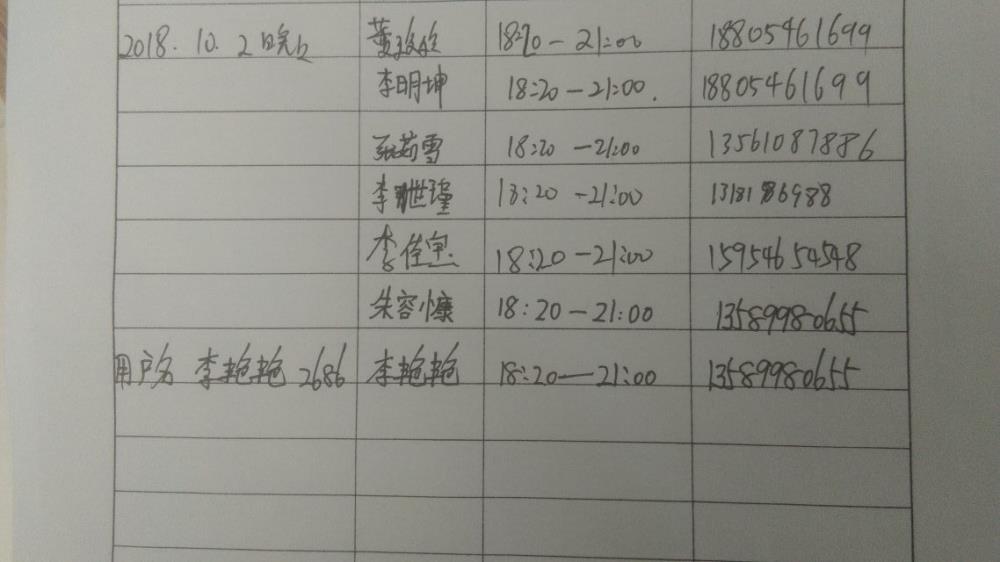 2018.10.2晚上 18:20-21:00 18805461699
李明坤 18:20-21:00. 18805461699
张茹雪 18:20-21:00 13561087886
李世瑾 18:20-21:00
李佳 18:20-21:00 15954654548
朱容慷 18:20-21:00 13589980655
用户名 李艳艳 2686 李艳艳 18:20-21:00 13589980655